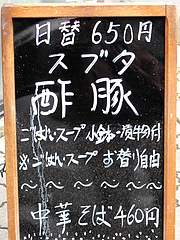 日替 650円
スブタ
酢豚
ごはん・スープ 小鉢・漬物付
※ごはん・スープ お替り自由
〜〜〜〜〜〜
中華そば460円